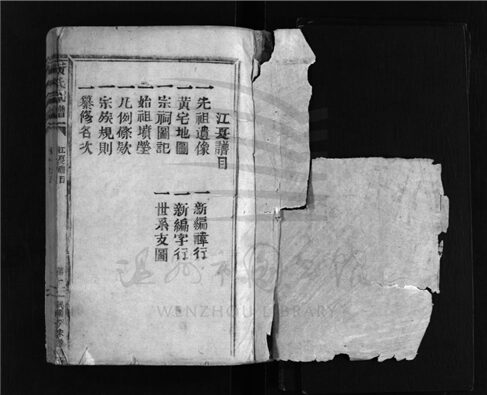 江夏譜目
一先祖遺像
一黃宅地圖
一宗祠圖記
一始祖墳塋
一凡例條欵
一宗族規則
一纂修名次
一新編諱行
一新編字行
一世系支圖
黃氏宗譜
江夏譜目
溫州市圖書館
WENZHOU LIBRARY